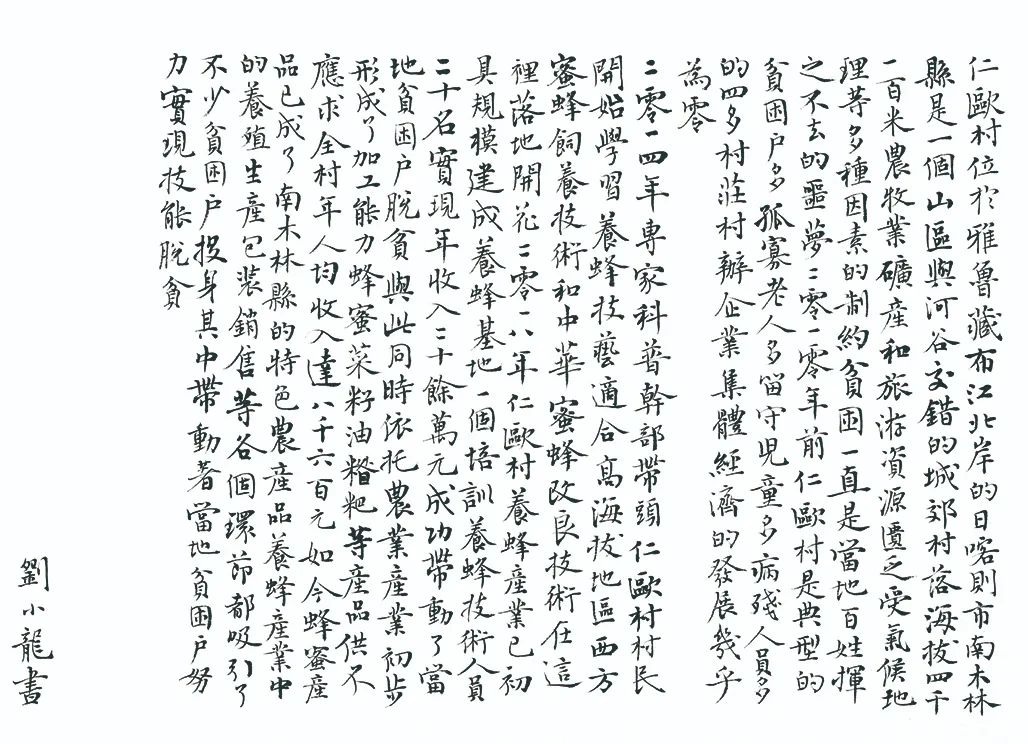 仁歐村位於雅魯藏布江北岸的日喀則市南木林
縣是一個山區與河谷交錯的城郊村落海拔四千
一百米農牧業礦產和旅游資源匱乏受氣候地
理等多種因素的制約貧困一直是當地百姓揮
之不去的噩夢二零一零年前仁歐村是典型的
貧困户多孤寡老人多留守児童多病殘人員多
的四多村莊村辦企業集體經濟的發展幾乎
為零
二零一四年専家科普幹部帶頭仁歐村村民
開始學習養蜂技藝適合高海拔地區西方
蜜蜂飼養技術和中華蜜蜂改良技術在這
裡落地開花二零一八年仁歐村養蜂産業已初
具規模建成養蜂基地一個培訓養蜂技術人員
二十名實現年收入二十餘萬元成功帶動了當
地貧困户脫貧與此同時依托農業産業初步
形成了加工能力蜂蜜菜籽油糌粑等産品供不
應求全村年人均收入達八千六百元如今蜂蜜産
品已成了南木林縣的特色農産品養蜂産業中
的養殖生産包装銷售等各個環節都吸引了
不少貧困户投身其中帶動著當地貧困户努
力實現技能脫貧
劉小龍書